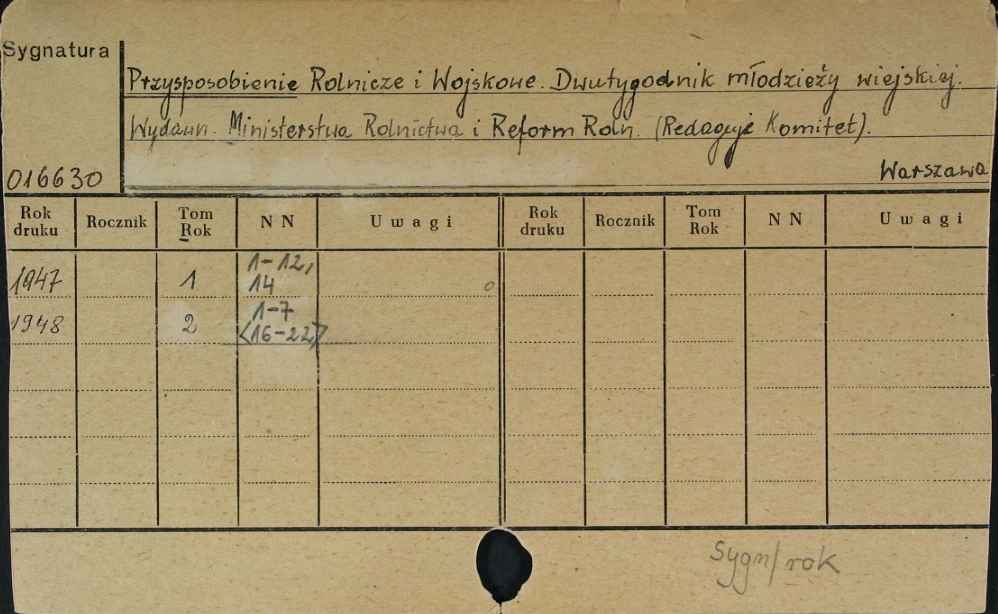 Sygnatura
Przysposobienie Rolnicze i Wojskowe. Dwutygodnik młodzieży wiejskiej.
Wydawn. Ministerstwa Rolnictwa i Reform Roln. (Redaguje Komitet).
016630 Warszawa
Rok druku Rocznik Tom Rok N N Uwagi Rok druku Rocznik Tom Rok N N Uwagi
1947 1 1-12, 14
1948 2 1-7 <16-22>
Sygn/rok